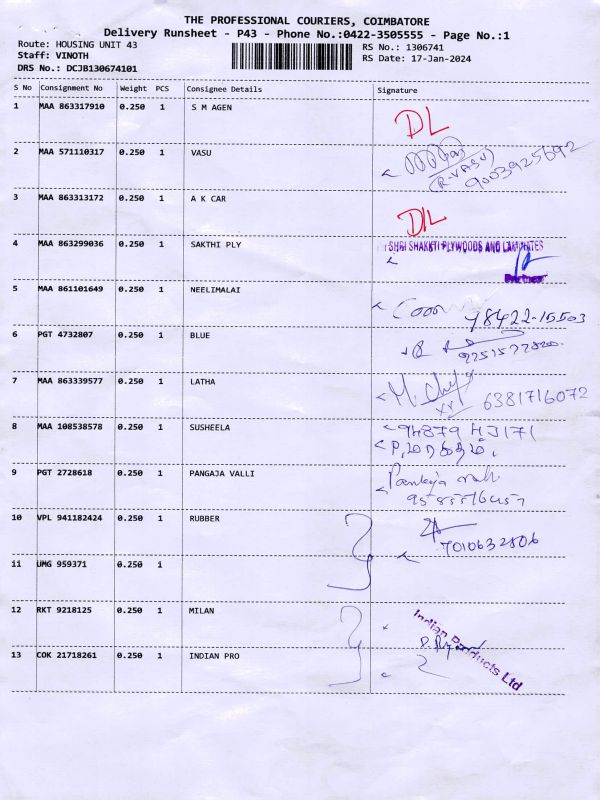 THE PROFESSIONAL COURIERS, COIMBATORE
Delivery Runsheet - P43 - Phone No.:0422-3505555 - Page No.:1
Route: HOUSING UNIT 43 RS No.: 1306741
Staff: VINOTH RS Date: 17-Jan-2024
DRS No.: DCJB130674101
S No Consignment No Weight PCS Consignee Details Signature
1 MAA 863317910 0.250 1 S M AGEN DL
2 MAA 571110317 0.250 1 VASU
(R.VASU)
9003925692
3 MAA 863313172 0.250 1 A K CAR DL
4 MAA 863299036 0.250 1 SAKTHI PLY SHRI SHAKKTI PLYWOODS AND LAMINATES
Partner
5 MAA 861101649 0.250 1 NEELIMALAI
78422-15503
6 PGT 4732807 0.250 1 BLUE
7 MAA 863339577 0.250 1 LATHA 6381716072
8 MAA 108538578 0.250 1 SUSHEELA
9 PGT 2728618 0.250 1 PANGAJA VALLI Pankaja valli
10 VPL 941182424 0.250 1 RUBBER
7010632806
11 UMG 959371 0.250 1
12 RKT 9218125 0.250 1 MILAN
Indian Products Ltd
13 COK 21718261 0.250 1 INDIAN PRO